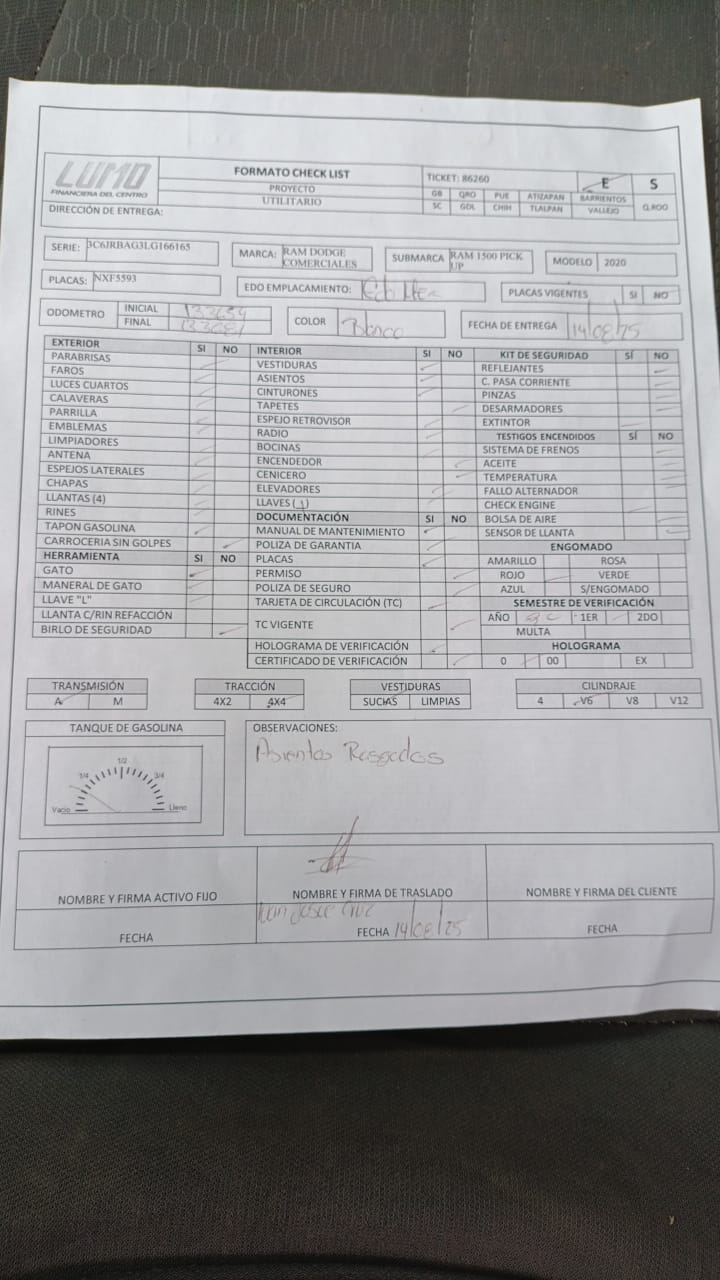 LUMO
FINANCIERA DEL CENTRO
FORMATO CHECK LIST
PROYECTO
UTILITARIO
TICKET: 86260
E S
GB QRO PUE ATIZAPAN BARRIENTOS
SC GDL CHIH TLALPAN VALLEJO Q.ROO
DIRECCIÓN DE ENTREGA:
SERIE: 3C6JRBAG3LG166165
MARCA: RAM DODGE COMERCIALES
SUBMARCA RAM 1500 PICK UP
MODELO 2020
PLACAS: NXF5593
EDO EMPLACAMIENTO: Edo Mex
PLACAS VIGENTES SI NO
ODOMETRO INICIAL
FINAL
COLOR Blanco
FECHA DE ENTREGA 14/08/25
EXTERIOR SI NO
PARABRISAS
FAROS
LUCES CUARTOS
CALAVERAS
PARRILLA
EMBLEMAS
LIMPIADORES
ANTENA
ESPEJOS LATERALES
CHAPAS
LLANTAS (4)
RINES
TAPON GASOLINA
CARROCERIA SIN GOLPES
HERRAMIENTA SI NO
GATO
MANERAL DE GATO
LLAVE "L"
LLANTA C/RIN REFACCIÓN
BIRLO DE SEGURIDAD
INTERIOR SI NO
VESTIDURAS
ASIENTOS
CINTURONES
TAPETES
ESPEJO RETROVISOR
RADIO
BOCINAS
ENCENDEDOR
CENICERO
ELEVADORES
LLAVES (1)
DOCUMENTACIÓN SI NO
MANUAL DE MANTENIMIENTO
POLIZA DE GARANTIA
PLACAS
PERMISO
POLIZA DE SEGURO
TARJETA DE CIRCULACIÓN (TC)
TC VIGENTE
HOLOGRAMA DE VERIFICACIÓN
CERTIFICADO DE VERIFICACIÓN
KIT DE SEGURIDAD SÍ NO
REFLEJANTES
C. PASA CORRIENTE
PINZAS
DESARMADORES
EXTINTOR
TESTIGOS ENCENDIDOS SÍ NO
SISTEMA DE FRENOS
ACEITE
TEMPERATURA
FALLO ALTERNADOR
CHECK ENGINE
BOLSA DE AIRE
SENSOR DE LLANTA
ENGOMADO
AMARILLO ROSA
ROJO VERDE
AZUL S/ENGOMADO
SEMESTRE DE VERIFICACIÓN
AÑO 1ER 2DO
MULTA
HOLOGRAMA
0 00 EX
TRANSMISIÓN
A M
TRACCIÓN
4X2 4X4
VESTIDURAS
SUCIAS LIMPIAS
CILINDRAJE
4 V6 V8 V12
TANQUE DE GASOLINA
1/4 1/2 3/4
Vacio Lleno
OBSERVACIONES:
Asientos Rasgados
NOMBRE Y FIRMA ACTIVO FIJO
NOMBRE Y FIRMA DE TRASLADO
NOMBRE Y FIRMA DEL CLIENTE
Cruz
FECHA
FECHA 14/08/25
FECHA